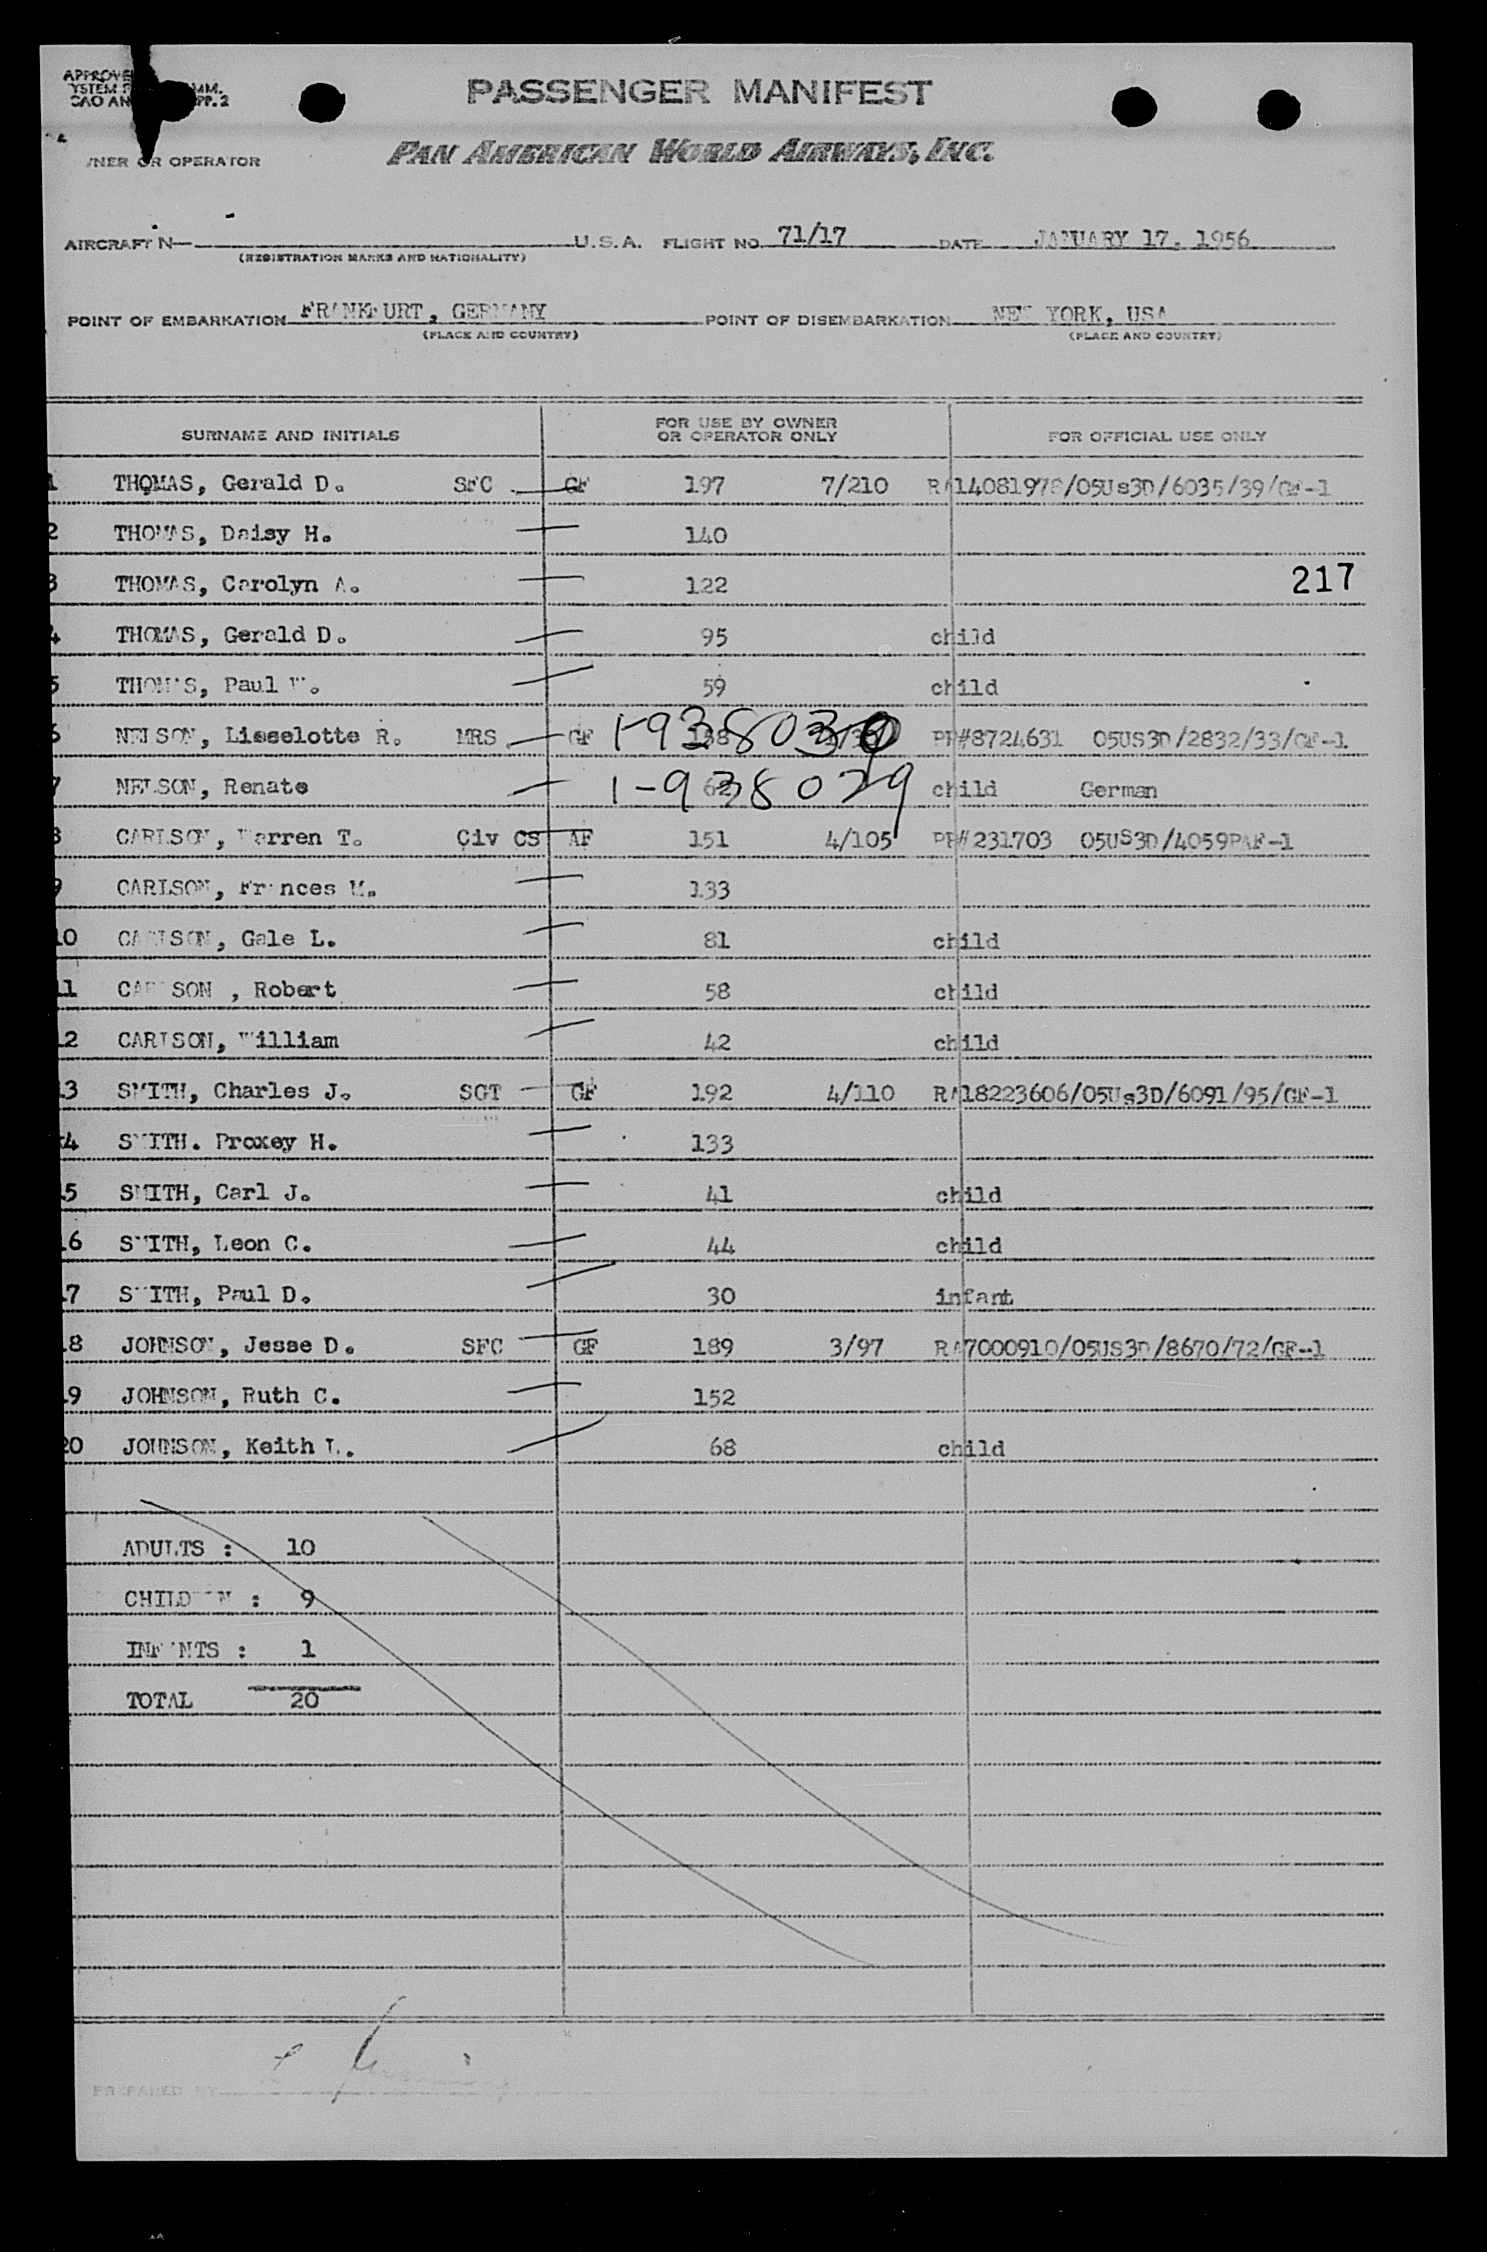 PASSENGER MANIFEST
OR OPERATOR
PAN AMERICAN WORLD AIRWAYS, INC.
AIRCRAFT N— U.S.A. FLIGHT NO. 71/17 DATE JANUARY 17, 1956
(REGISTRATION MARKS AND NATIONALITY)
POINT OF EMBARKATION FRANKFURT, GERMANY POINT OF DISEMBARKATION NEW YORK, USA
(PLACE AND COUNTRY) (PLACE AND COUNTRY)
SURNAME AND INITIALS FOR USE BY OWNER OR OPERATOR ONLY FOR OFFICIAL USE ONLY
1 THOMAS, Gerald D. SFC GF 197 7/210 RA14081978/05Us3D/6035/39/GF-1
2 THOMAS, Daisy H. 140
3 THOMAS, Carolyn A. 122 217
4 THOMAS, Gerald D. 95 child
5 THOMAS, Paul W. 59 child
6 NELSON, Lieselotte R. MRS GF 1-938030 PP#8724631 05US3D/2832/33/GF-1
7 NELSON, Renate 1-938029 child German
8 CARLSON, Warren T. Civ CS AF 151 4/105 PP#231703 05US3D/4059PAF-1
9 CARLSON, Frances M. 133
10 CARLSON, Gale L. 81 child
11 CARLSON , Robert 58 child
12 CARLSON, William 42 child
13 SMITH, Charles J. SGT GF 192 4/110 RA18223606/05Us3D/6091/95/GF-1
14 SMITH. Proxey H. 133
15 SMITH, Carl J. 41 child
16 SMITH, Leon C. 44 child
17 SMITH, Paul D. 30 infant
18 JOHNSON, Jesse D. SFC GF 189 3/97 RA7000910/05US3D/8670/72/GF-1
19 JOHNSON, Ruth C. 152
20 JOHNSON, Keith L. 68 child
ADULTS : 10
CHILDREN : 9
INFANTS : 1
TOTAL 20
PREPARED BY